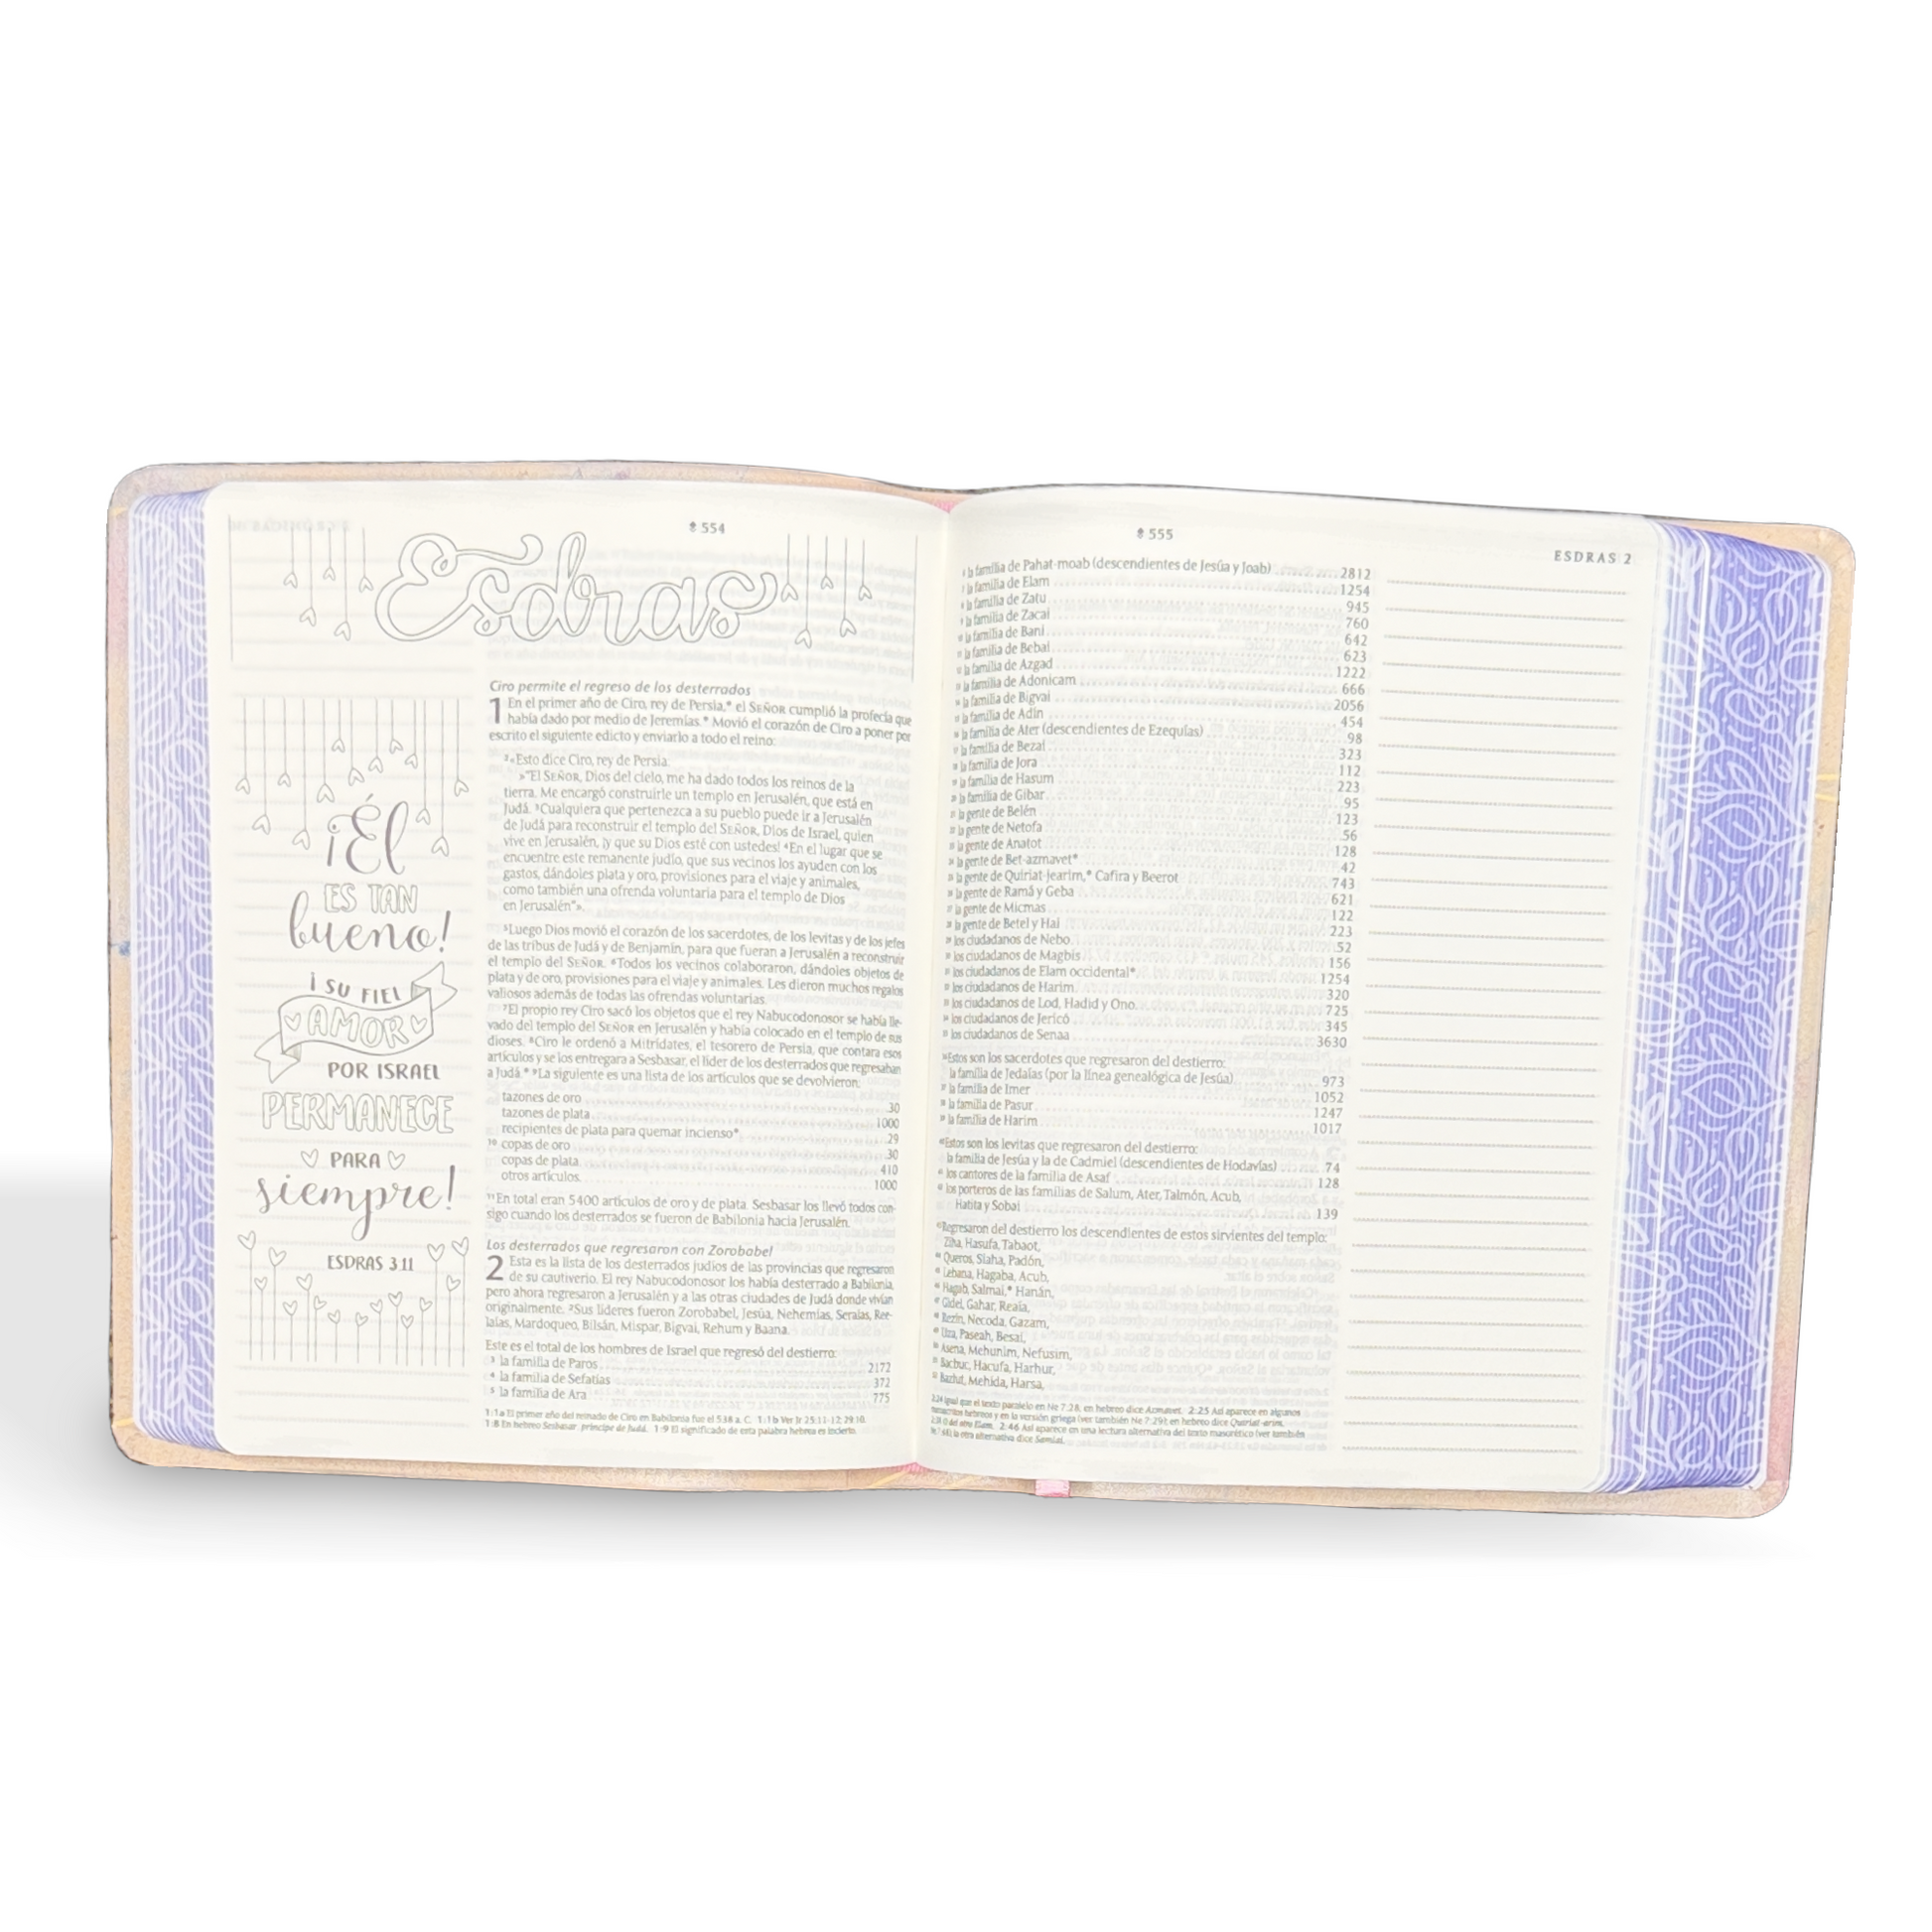 554
Esdras
¡Él
ES TAN
bueno!
¡SU FIEL
AMOR
POR ISRAEL
PERMANECE
PARA
siempre!
ESDRAS 3:11
Ciro permite el regreso de los desterrados
1 En el primer año de Ciro, rey de Persia,* el SEÑOR cumplió la profecía que
había dado por medio de Jeremías.* Movió el corazón de Ciro a poner por
escrito el siguiente edicto y enviarlo a todo el reino:
2«Esto dice Ciro, rey de Persia:
»"El SEÑOR, Dios del cielo, me ha dado todos los reinos de la
tierra. Me encargó construirle un templo en Jerusalén, que está en
Judá. 3Cualquiera que pertenezca a su pueblo puede ir a Jerusalén
de Judá para reconstruir el templo del SEÑOR, Dios de Israel, quien
vive en Jerusalén, ¡y que su Dios esté con ustedes! 4En el lugar que se
encuentre este remanente judío, que sus vecinos los ayuden con los
gastos, dándoles plata y oro, provisiones para el viaje y animales,
como también una ofrenda voluntaria para el templo de Dios
en Jerusalén"».
5Luego Dios movió el corazón de los sacerdotes, de los levitas y de los jefes
de las tribus de Judá y de Benjamín, para que fueran a Jerusalén a reconstruir
el templo del SEÑOR. 6Todos los vecinos colaboraron, dándoles objetos de
plata y de oro, provisiones para el viaje y animales. Les dieron muchos regalos
valiosos además de todas las ofrendas voluntarias.
7El propio rey Ciro sacó los objetos que el rey Nabucodonosor se había lle-
vado del templo del SEÑOR en Jerusalén y había colocado en el templo de sus
dioses. 8Ciro le ordenó a Mitrídates, el tesorero de Persia, que contara esos
artículos y se los entregara a Sesbasar, el líder de los desterrados que regresaban
a Judá.* 9La siguiente es una lista de los artículos que se devolvieron:
tazones de oro 30
tazones de plata 1000
recipientes de plata para quemar incienso* 29
10 copas de oro 30
copas de plata 410
otros artículos 1000
11En total eran 5400 artículos de oro y de plata. Sesbasar los llevó todos con-
sigo cuando los desterrados se fueron de Babilonia hacia Jerusalén.
Los desterrados que regresaron con Zorobabel
2 Esta es la lista de los desterrados judíos de las provincias que regresaron
de su cautiverio. El rey Nabucodonosor los había desterrado a Babilonia,
pero ahora regresaron a Jerusalén y a las otras ciudades de Judá donde vivían
originalmente. 2Sus líderes fueron Zorobabel, Jesúa, Nehemías, Seraías, Ree-
laías, Mardoqueo, Bilsán, Mispar, Bigvai, Rehum y Baana.
Este es el total de los hombres de Israel que regresó del destierro:
3 la familia de Paros 2172
4 la familia de Sefatías 372
5 la familia de Ara 775
1:1a El primer año del reinado de Ciro en Babilonia fue el 538 a. C. 1:1b Ver Jr 25:11-12; 29:10.
1:8 En hebreo Sesbasar, príncipe de Judá. 1:9 El significado de esta palabra hebrea es incierto.
555
ESDRAS 2
6 la familia de Pahat-moab (descendientes de Jesúa y Joab) 2812
7 la familia de Elam 1254
8 la familia de Zatu 945
9 la familia de Zacai 760
10 la familia de Bani 642
11 la familia de Bebai 623
12 la familia de Azgad 1222
13 la familia de Adonicam 666
14 la familia de Bigvai 2056
15 la familia de Adín 454
16 la familia de Ater (descendientes de Ezequías) 98
17 la familia de Bezai 323
18 la familia de Jora 112
19 la familia de Hasum 223
20 la familia de Gibar 95
21 la gente de Belén 123
22 la gente de Netofa 56
23 la gente de Anatot 128
24 la gente de Bet-azmavet* 42
25 la gente de Quiriat-jearim,* Cafira y Beerot 743
26 la gente de Ramá y Geba 621
27 la gente de Micmas 122
28 la gente de Betel y Hai 223
29 los ciudadanos de Nebo 52
30 los ciudadanos de Magbis 156
31 los ciudadanos de Elam occidental* 1254
32 los ciudadanos de Harim 320
33 los ciudadanos de Lod, Hadid y Ono 725
34 los ciudadanos de Jericó 345
35 los ciudadanos de Senaa 3630
36Estos son los sacerdotes que regresaron del destierro:
la familia de Jedaías (por la línea genealógica de Jesúa) 973
37 la familia de Imer 1052
38 la familia de Pasur 1247
39 la familia de Harim 1017
40Estos son los levitas que regresaron del destierro:
la familia de Jesúa y la de Cadmiel (descendientes de Hodavías) 74
41 los cantores de la familia de Asaf 128
42 los porteros de las familias de Salum, Ater, Talmón, Acub,
Hatita y Sobai 139
43Regresaron del destierro los descendientes de estos sirvientes del templo:
Ziha, Hasufa, Tabaot,
44 Queros, Siaha, Padón,
45 Lebana, Hagaba, Acub,
46 Hagab, Salmai,* Hanán,
47 Gidel, Gahar, Reaía,
48 Rezín, Necoda, Gazam,
49 Uza, Paseah, Besai,
50 Asena, Mehunim, Nefusim,
51 Bacbuc, Hacufa, Harhur,
52 Bazlut, Mehída, Harsa,
2:24 Igual que el texto paralelo en Ne 7:28, en hebreo dice Azmavet. 2:25 Así aparece en algunos
manuscritos hebreos y en la versión griega (ver también Ne 7:29); en hebreo dice Quiriat-arim.
2:31 O del otro Elam. 2:46 Así aparece en una lectura alternativa del texto masorético (ver también
Ne 7:48); la otra alternativa dice Samlai.